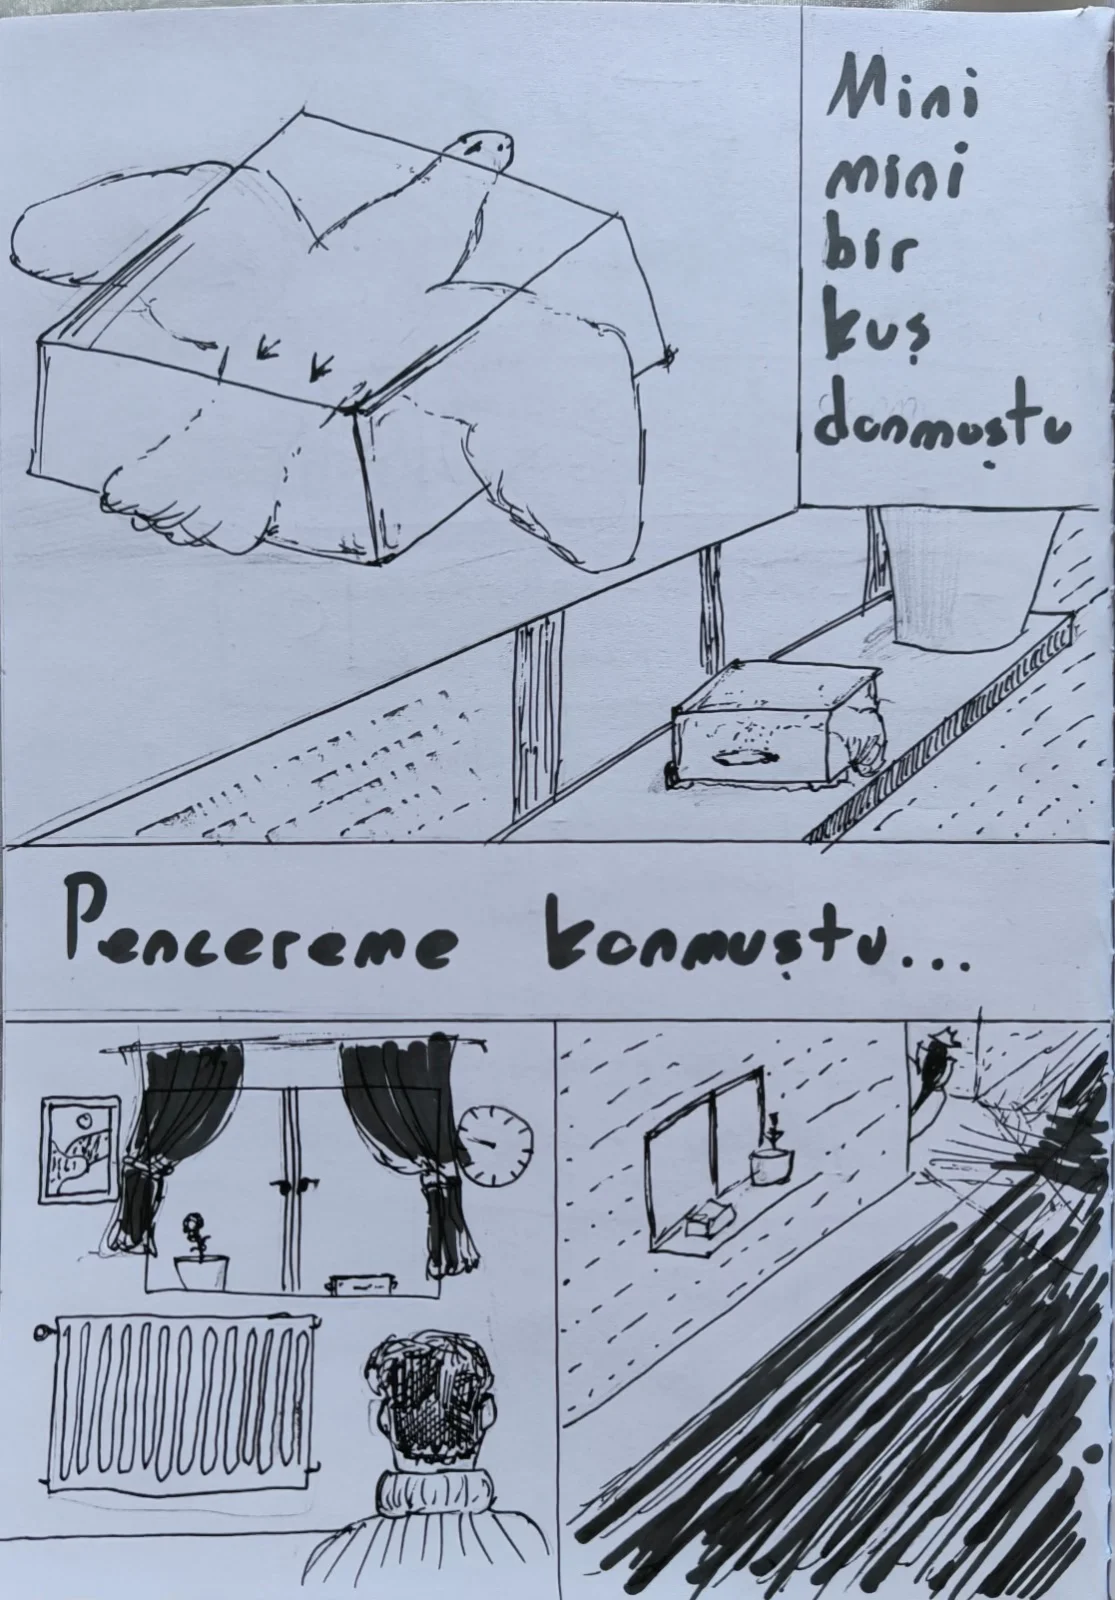 Mini
mini
bir
kuş
donmuştu
Pencereme konmuştu...